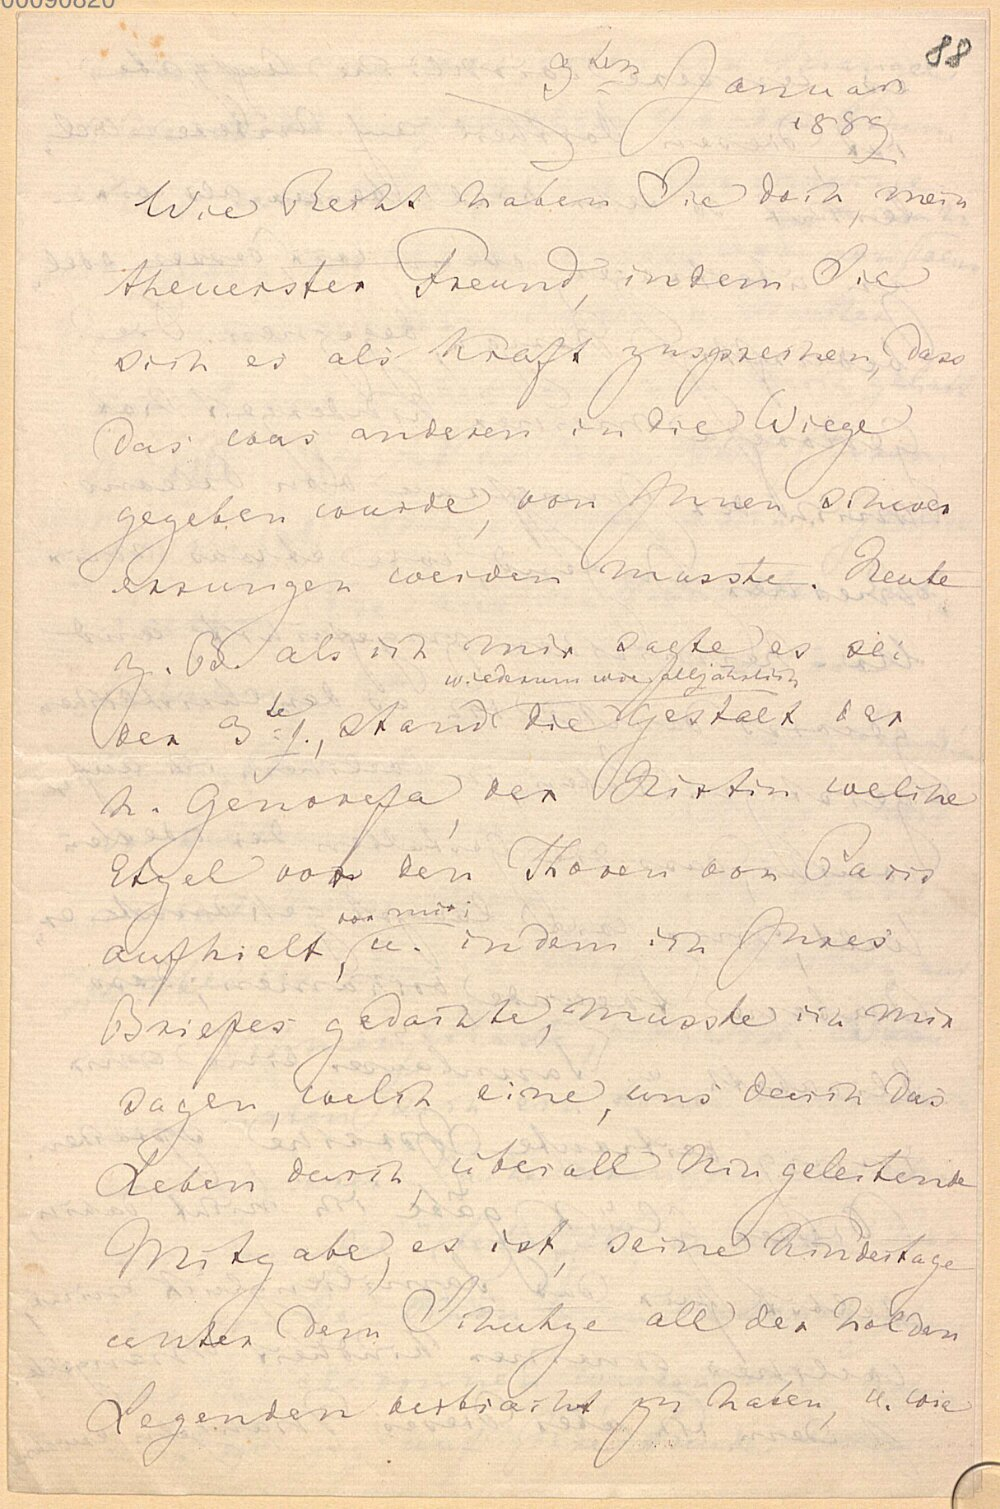 00090820
88
3ten Januar
1889
Wie Recht haben Sie doch, mein
theuerster Freund, indem Sie
sich es als Kraft zusprechen, dass
das was anderen in die Wiege
gegeben wurde, von Ihnen schwer
errungen werden musste. Heute
z. B. als ich mir sagte es sei
wiederum wie alljährlich
der 3te J., stand die Gestalt der
h. Genovefa, der Hirtin welche
Etzel vor den Thoren von Paris
vor mir;
aufhielt, u. indem ich Ihres
Briefes gedachte, musste ich mir
sagen, welch eine, uns durch das
Leben durch, überall hin geleitende
Mitgabe, es ist, seine Kindestage
unter dem Schutze all der holden
Legenden verbracht zu haben, u. wie